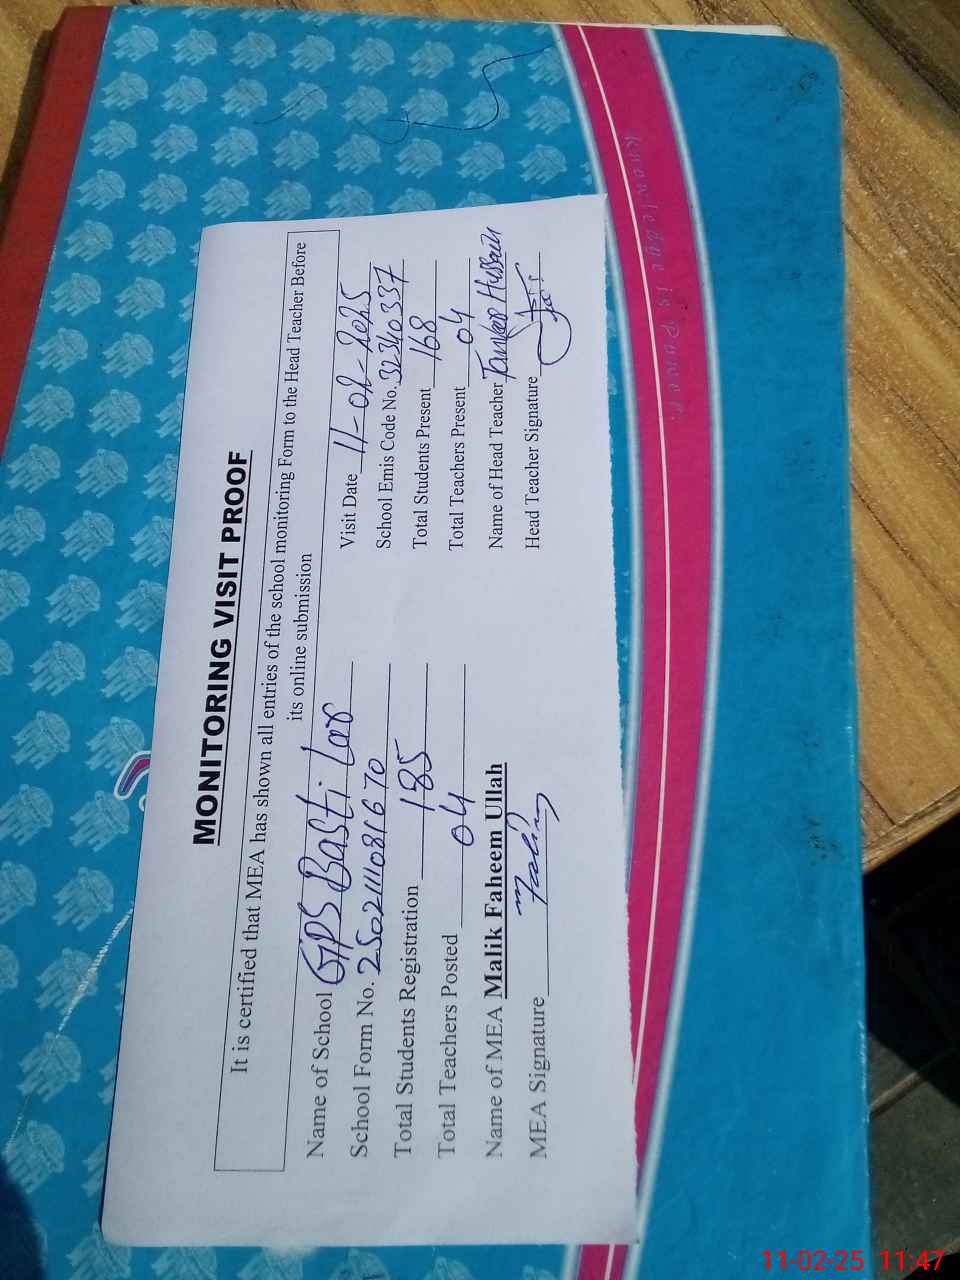 MONITORING VISIT PROOF
It is certified that MEA has shown all entries of the school monitoring Form to the Head Teacher Before
its online submission
Name of School GPS Basti Lar
Visit Date 11-02-2025
School Form No. 250211108167
School Emis Code No. 32340337
Total Students Registration 185
Total Students Present 168
Total Teachers Posted 04
Total Teachers Present 04
Name of MEA Malik Faheem Ullah
Name of Head Teacher Hussain
MEA Signature
Head Teacher Signature
knowledge is Power
11-02-25 11:47